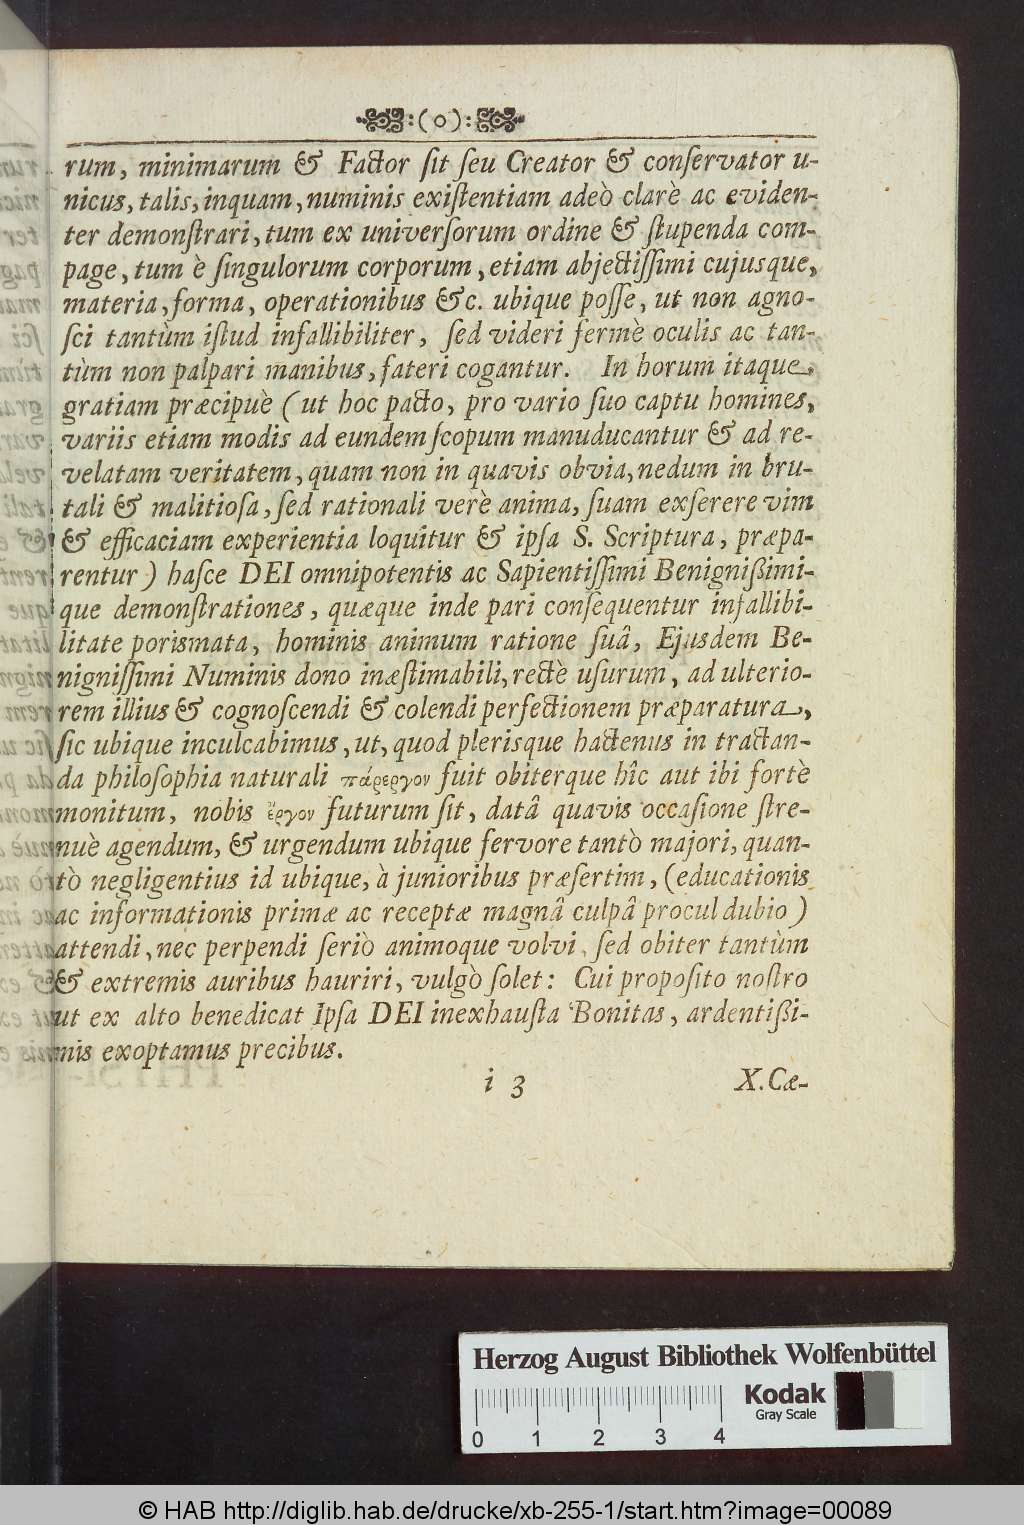 :(o):
rum, minimarum & Factor ſit ſeu Creator & conſervator u-
nicus, talis, inquam, numinis exiſtentiam adeò clarè ac eviden-
ter demonſtrari, tum ex univerſorum ordine & ſtupenda com-
page, tum è ſingulorum corporum, etiam abjectiſſimi cujusque,
materia, forma, operationibus &c. ubique poſſe, ut non agno-
ſci tantùm iſtud infallibiliter, ſed videri fermè oculis ac tan-
tùm non palpari manibus, fateri cogantur. In horum itaque
gratiam præcipuè (ut hoc pacto, pro vario ſuo captu homines,
variis etiam modis ad eundem ſcopum manuducantur & ad re-
velatam veritatem, quam non in quavis obvia, nedum in bru-
tali & malitioſa, ſed rationali verè anima, ſuam exſerere vim
& efficaciam experientia loquitur & ipſa S. Scriptura, præpa-
rentur) haſce DEI omnipotentis ac Sapientiſſimi Benignißimi-
que demonſtrationes, quæque inde pari conſequentur infallibi-
litate porismata, hominis animum ratione ſuâ, Ejusdem Be-
nigniſſimi Numinis dono inæſtimabili, rectè uſurum, ad ulterio-
rem illius & cognoſcendi & colendi perfectionem præparatura,
ſic ubique inculcabimus, ut, quod plerisque hactenus in tractan-
da philoſophia naturali πάρεργον fuit obiterque hîc aut ibi fortè
monitum, nobis ἔργον futurum ſit, datâ quavis occaſione ſtre-
nuè agendum, & urgendum ubique fervore tantò majori, quan-
tò negligentius id ubique, à junioribus præſertim, (educationis
ac informationis primæ ac receptæ magnâ culpâ procul dubio)
attendi, nec perpendi ſeriò animoque volvi, ſed obiter tantùm
& extremis auribus hauriri, vulgò ſolet: Cui propoſito noſtro
ut ex alto benedicat Ipſa DEI inexhauſta Bonitas, ardentißi-
mis exoptamus precibus.
i 3 X. Cæ-
Herzog August Bibliothek Wolfenbüttel
Kodak
Gray Scale
0 1 2 3 4
© HAB http://diglib.hab.de/drucke/xb-255-1/start.htm?image=00089